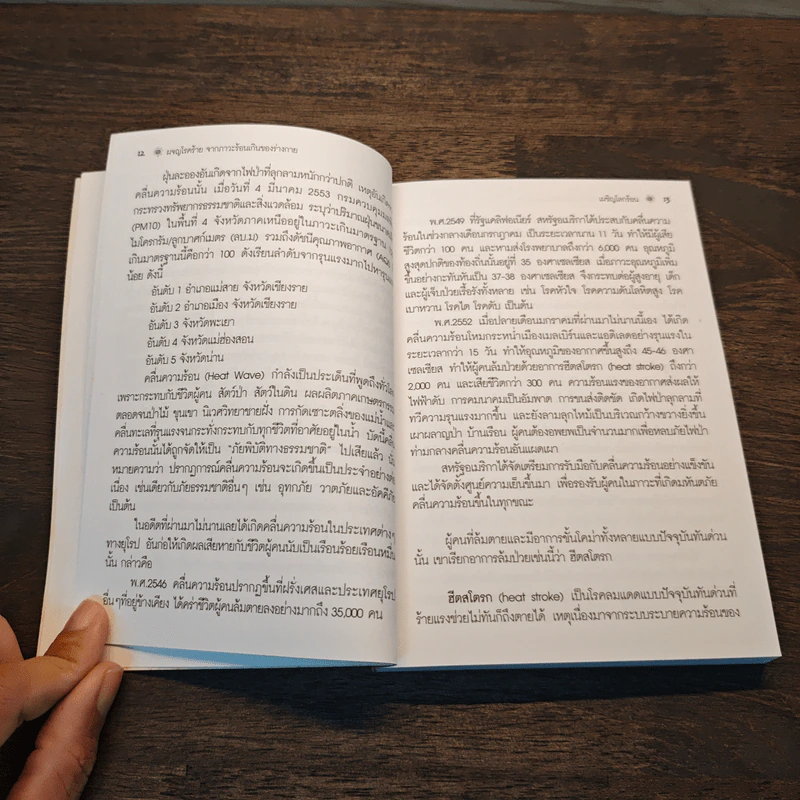 12. ผจญโรคร้าย จากภาวะร้อนเกินของร่างกาย
ฝุ่นละอองอันเกิดจากไฟป่าที่ลุกลามหนักกว่าปกติ
คลื่นความร้อนนั้น เมื่อวันที่ 4 มีนาคม 2553 กรมควบคุมมลพิษ
กระทรวงทรัพยากรธรรมชาติและสิ่งแวดล้อม ระบุว่าปริมาณฝุ่นขนาดเล็ก
(PM10) ในพื้นที่ 4 จังหวัดภาคเหนืออยู่ในภาวะเกินมาตรฐาน
ไมโครกรัม/ลูกบาศก์เมตร (ลบ.ม) รวมถึงดัชนีคุณภาพอากาศ (AQI)
เกินมาตรฐานนี้คือกว่า 100 ดังเรียนลำดับจากรุนแรงมากไปหารุนแรง
น้อย ดังนี้
อันดับ 1 อำเภอแม่สาย จังหวัดเชียงราย
อันดับ 2 อำเภอเมือง จังหวัดเชียงราย
อันดับ 3 จังหวัดพะเยา
อันดับ 4 จังหวัดแม่ฮ่องสอน
อันดับ 5 จังหวัดน่าน
คลื่นความร้อน (Heat Wave) กำลังเป็นประเด็นที่พูดถึงทั่วโลก
เพราะกระทบกับชีวิตผู้คน สัตว์ป่า สัตว์ในดิน ผลผลิตภาคเกษตรกรรม
ตลอดจนป่าไม้ ขุนเขา นิเวศวิทยาชายฝั่ง การกัดเซาะตลิ่งของแม่น้ำและ
คลื่นทะเลที่รุนแรงจนกระทั่งกระทบกับทุกชีวิตที่อาศัยอยู่ในน้ำ บัดนี้คลื่น
ความร้อนนั้นได้ถูกจัดให้เป็น "ภัยพิบัติทางธรรมชาติ" ไปเสียแล้ว นั่น
หมายความว่า ปรากฏการณ์คลื่นความร้อนจะเกิดขึ้นเป็นประจำอย่างต่อ
เนื่อง เช่นเดียวกับภัยธรรมชาติอื่นๆ เช่น อุทกภัย วาตภัยและอัคคีภัย
เป็นต้น
ในอดีตที่ผ่านมาไม่นานเลยได้เกิดคลื่นความร้อนในประเทศต่างๆ
ทางยุโรป อันก่อให้เกิดผลเสียหายกับชีวิตผู้คนนับเป็นเรือนร้อยเรือนหมื่น
นั้น กล่าวคือ
พ.ศ.2546 คลื่นความร้อนปรากฏขึ้นที่ฝรั่งเศสและประเทศยุโรป
อื่นๆที่อยู่ข้างเคียง ได้คร่าชีวิตผู้คนล้มตายลงอย่างมากถึง 35,000 คน
เผชิญโลกร้อน 13
พ.ศ.2549 ที่รัฐแคลิฟอเนียร์ สหรัฐอเมริกาได้ประสบกับคลื่นความ
ร้อนในช่วงกลางเดือนกรกฎาคม เป็นระยะเวลานาน 11 วัน ทำให้มีผู้เสีย
ชีวิตกว่า 100 คน และหามส่งโรงพยาบาลถึงกว่า 6,000 คน อุณหภูมิ
สูงสุดปกติของท้องถิ่นนั้นอยู่ที่ 35 องศาเซลเซียส เมื่อภาวะอุณหภูมิเพิ่ม
ขึ้นอย่างกะทันหันเป็น 37-38 องศาเซลเซียส จึงกระทบต่อผู้สูงอายุ เด็ก
และผู้เจ็บป่วยเรื้อรังทั้งหลาย เช่น โรคหัวใจ โรคความดันโลหิตสูง โรค
เบาหวาน โรคไต โรคตับ เป็นต้น
พ.ศ.2552 เมื่อปลายเดือนมกราคมที่ผ่านมาไม่นานนี้เอง ได้เกิด
คลื่นความร้อนโหมกระหน่ำเมืองเมลเบิร์นและแอดิเลดอย่างรุนแรงใน
ระยะเวลากว่า 15 วัน ทำให้อุณหภูมิของอากาศขึ้นสูงถึง 45-46 องศา
เซลเซียส ทำให้ผู้คนล้มป่วยด้วยอาการฮีตสโตรก (heat stroke) ถึงกว่า
2,000 คน และเสียชีวิตกว่า 300 คน ความร้อนแรงของอากาศส่งผลให้
ไฟฟ้าดับ การคมนาคมเป็นอัมพาต การขนส่งติดขัด เกิดไฟป่าลุกลามที่
ทวีความรุนแรงมากขึ้น และยังลามลุกไหม้เป็นบริเวณกว้างขวางยิ่งขึ้น
เผาผลาญป่า บ้านเรือน ผู้คนต้องอพยพเป็นจำนวนมากเพื่อหลบภัยไฟป่า
ท่ามกลางคลื่นความร้อนอันแผดเผา
สหรัฐอเมริกาได้จัดเตรียมการรับมือกับคลื่นความร้อนอย่างแข็งขัน
และได้จัดตั้งศูนย์ความเย็นขึ้นมา เพื่อรองรับผู้คนในภาวะที่เกิดมหันตภัย
คลื่นความร้อนขึ้นในทุกขณะ
ผู้คนที่ล้มตายและมีอาการขั้นโคม่าทั้งหลายแบบปัจจุบันทันด่วน
นั้น เขาเรียกอาการล้มป่วยเช่นนี้ว่า ฮีตสโตรก
ฮีตสโตรก (heat stroke) เป็นโรคลมแดดแบบปัจจุบันทันด่วนที่
ร้ายแรงช่วยไม่ทันก็ถึงตายได้ เหตุเนื่องมาจากระบบระบายความร้อนของ